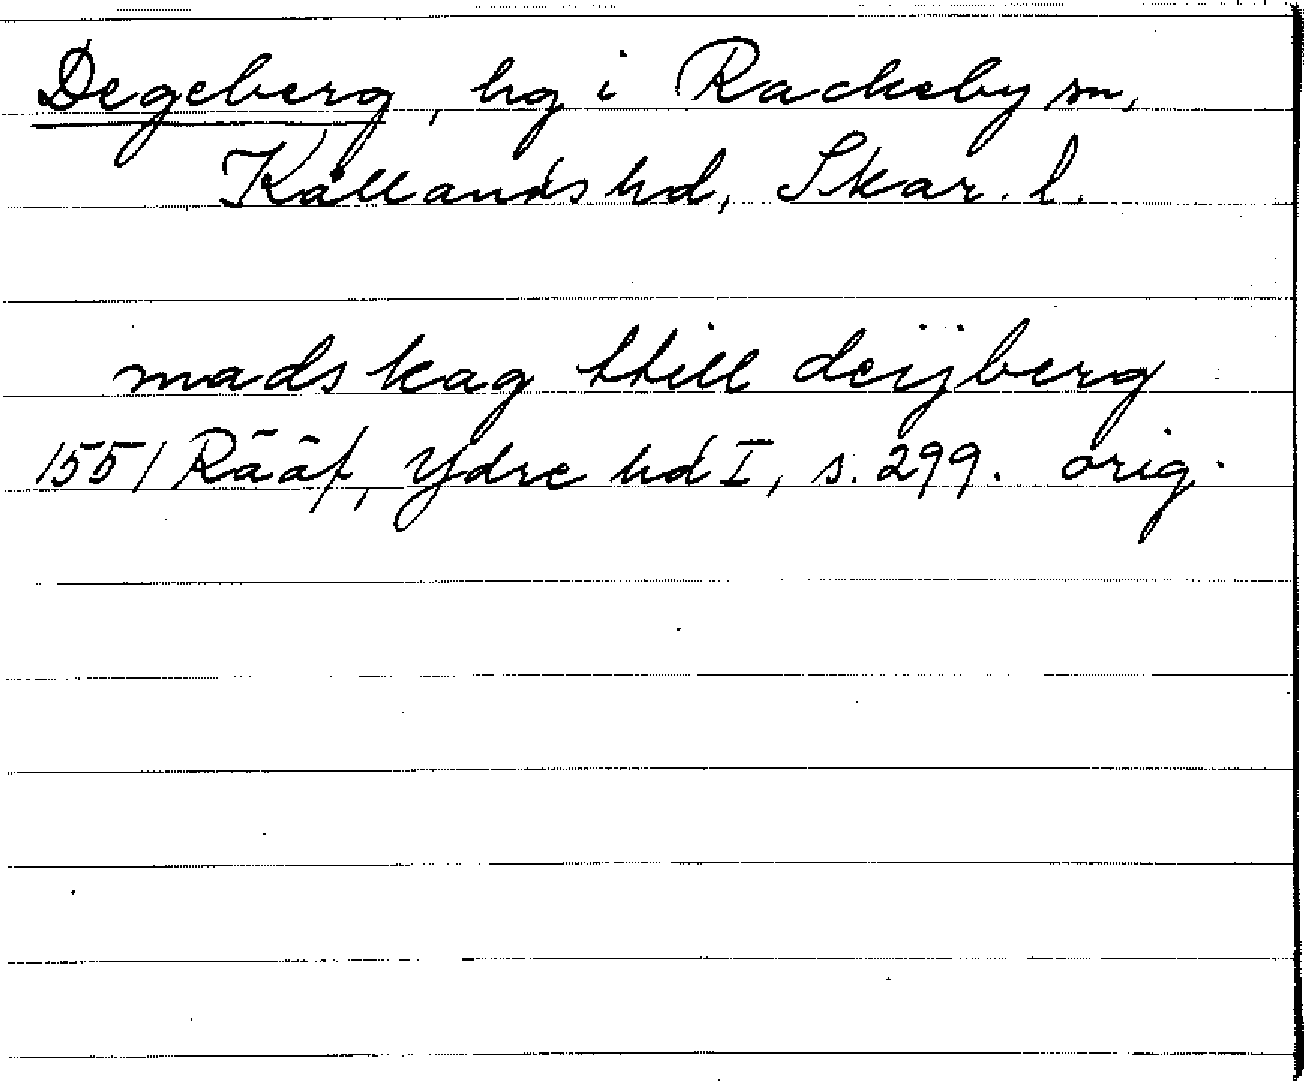 Degeberg, hg i Rackeby sn,
Kållands hd, Skar. l.
mads kag ttill deijberg
1551 Rääf, Ydre hd I, s. 299. orig.